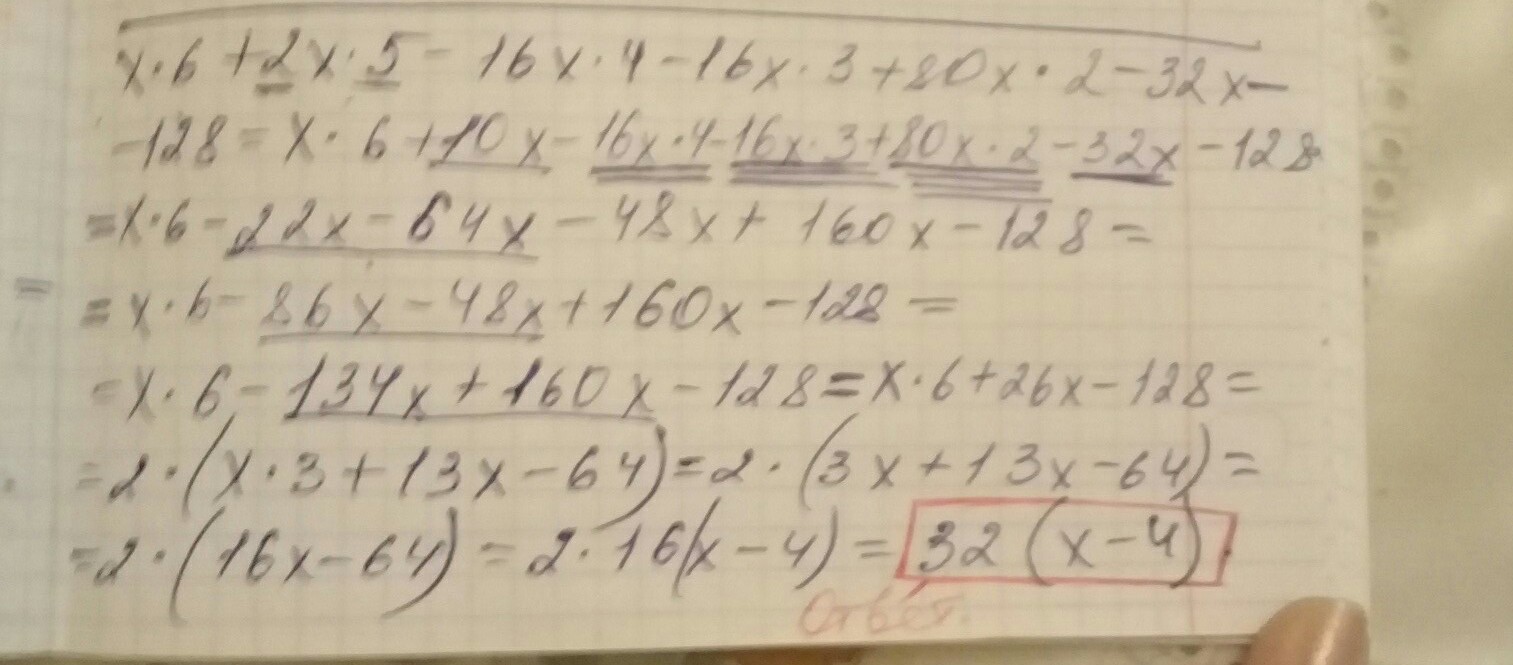 x·6+2x·5-16x·4-16x·3+80x·2-32x-
-128=x·6+10x-16x·4-16x·3+80x·2-32x-128
=x·6-22x-64x-48x+160x-128=
=
=x·6-86x-48x+160x-128=
=x·6-134x+160x-128=x·6+26x-128=
=2·(x·3+13x-64)=2·(3x+13x-64)=
=2·(16x-64)=2·16(x-4)=32(x-4)
Ответ.